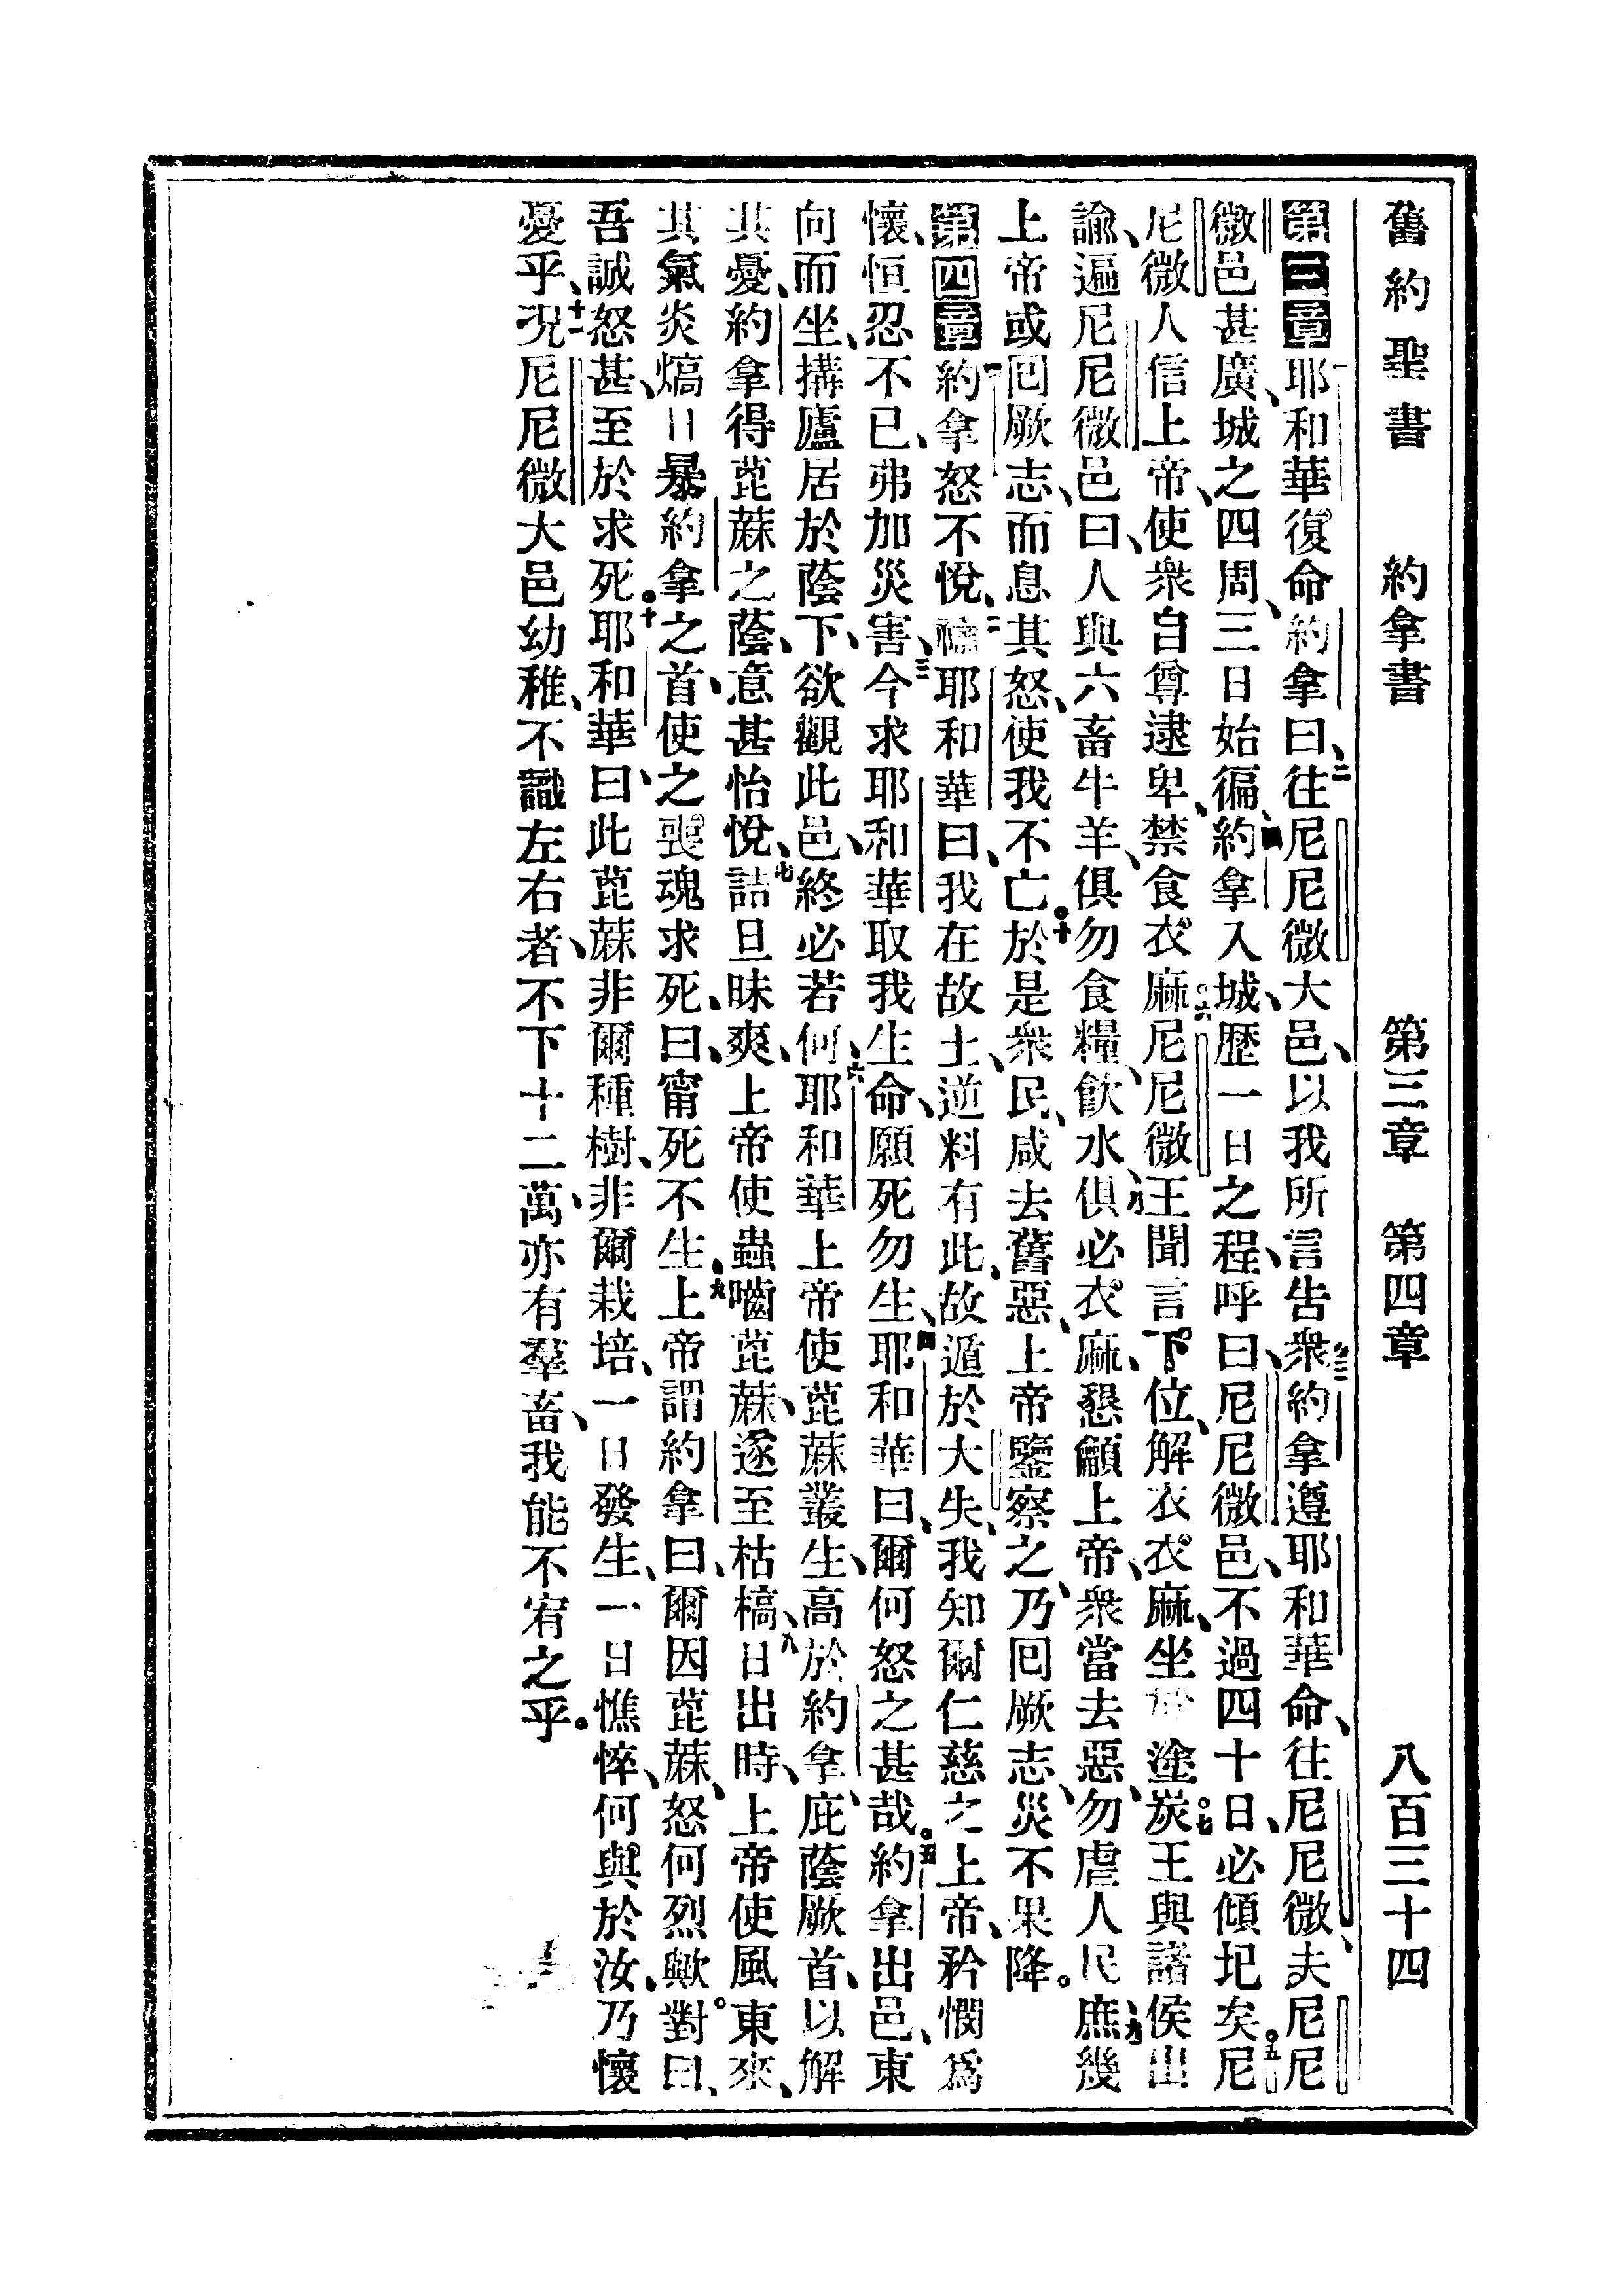 舊約聖書 約拿書 第三章 第四章 八百三十四
第三章一耶和華復命約拿曰、二往尼尼微大邑、以我所言告衆。三約拿遵耶和華命、往尼尼微、夫尼尼
微邑甚廣、城之四周、三日始徧、四約拿入城、歷一日之程、呼曰、尼尼微邑、不過四十日、必傾圮矣。五尼
尼微人信上帝、使衆自尊逮卑、禁食衣麻。六尼尼微王聞言下位、解衣衣麻、坐於塗炭。七王與諸侯出
諭、遍尼尼微邑曰、人與六畜牛羊、俱勿食糧、飮水、八俱必衣麻、懇籲上帝、衆當去惡、勿虐人民、九庶幾
上帝或回厥志、而息其怒、使我不亡。十於是衆民、咸去舊惡、上帝鑒察之、乃回厥志、災不果降。
第四章一約拿怒不悅、二禱耶和華曰、我在故土、逆料有此、故遁於大失、我知爾仁慈之上帝、矜憫爲
懷、恒忍不已、弗加災害、三今求耶和華取我生命、願死勿生、四耶和華曰、爾何怒之甚哉。五約拿出邑、東
向而坐、搆廬居於蔭下、欲觀此邑、終必若何、六耶和華上帝使萞蔴叢生、高於約拿、庇蔭厥首、以解
其憂、約拿得萞蔴之蔭、意甚怡悅、七詰旦昧爽、上帝使蟲嚙萞蔴、遂至枯槁、八日出時、上帝使風東來、
其氣炎熇、日暴約拿之首、使之喪魂求死、曰、甯死不生、九上帝謂約拿曰、爾因萞蔴、怒何烈歟。對曰、
吾誠怒甚、至於求死。十耶和華曰、此萞蔴非爾種樹、非爾栽培、一日發生、一日憔悴、何與於汝、乃懷
憂乎、十一况尼尼微大邑幼稚、不識左右者、不下十二萬、亦有羣畜、我能不宥之乎。